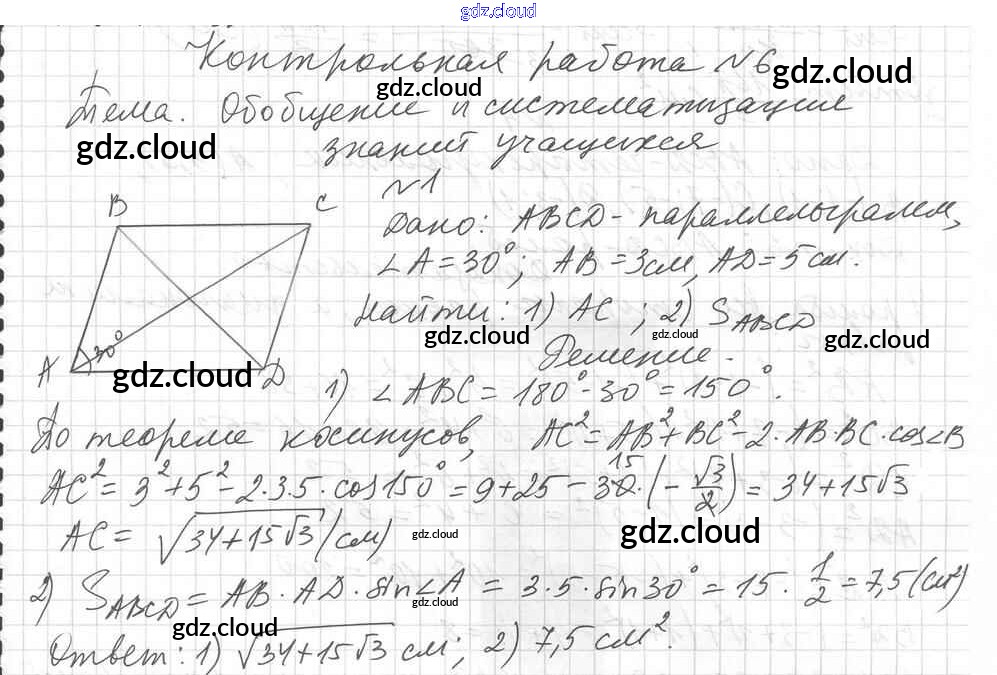 gdz.cloud
Контрольная работа №6
gdz.cloud
gdz.cloud
Тема. Обобщение и систематизация
gdz.cloud
знаний учащихся
№1
B C
Дано: ABCD - параллелограмм,
∠A = 30°; AB = 3см, AD = 5 см.
Найти: 1) AC ; 2) S_ABCD
gdz.cloud
gdz.cloud
gdz.cloud
Решение.
A 30° D
gdz.cloud
1) ∠ABC = 180° - 30° = 150°.
По теореме косинусов, AC² = AB² + BC² - 2·AB·BC·cos∠B
AC² = 3² + 5² - 2·3·5·cos150° = 9 + 25 - 30·(-√3/2) = 34 + 15√3
15
AC = √(34+15√3) (см)
gdz.cloud
gdz.cloud
2) S_ABCD = AB·AD·sin∠A = 3·5·sin30° = 15·1/2 = 7,5 (см²)
gdz.cloud
gdz.cloud
Ответ: 1) √(34+15√3) см; 2) 7,5 см².